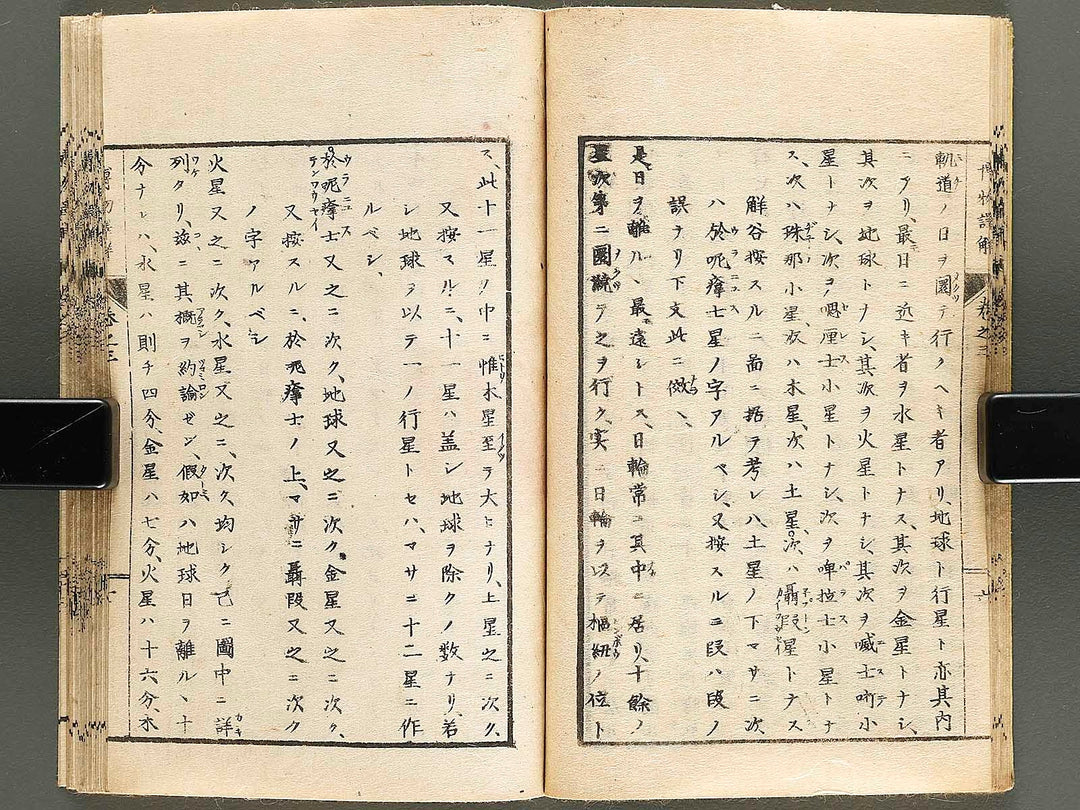 軌道ノ日ヲ圜テ行クヘキ者アリ、地球ト行星ト亦其内
ニアリ、最日ニ近キ者ヲ水星トナス、其次ヲ金星トナシ、
其次ヲ地球トナシ、其次ヲ火星トナシ、其次ヲ喊士咑小
星トナシ、次ヲ嗯厘士小星トナシ、次ヲ啤拉士小星トナ
ス、次ハ珠那小星、次ハ木星、次ハ土星。次ハ聶段星トナス
解谷按スルニ面ニ括ヲ考レハ、土星ノ下マサニ次
ハ於呢羍士星ノ字アルベシ、又按スルニ段ハ段ノ
誤ナリ下文此ニ倣、
是日ヲ離ル、最遠シトス、日輪常ニ其中ニ居リ、十餘ノ
星次第ニ圜繞シテ之ヲ行ク、実ニ日輪ヲ以テ樞紐ノ位ト
ス、此十一星ノ中ニ惟木星至テ大トナリ、土星之ニ次ク、
又按スルニ、十一星ハ盖シ地球ヲ除クノ数ナリ、若
シ地球ヲ以テ一ノ行星トセハ、マサニ十二星ニ作
ルベシ、
於呢羍士又之ニ次ク、地球又之ニ次ク、金星又之ニ次ク、
又按スルニ、於呢羍士ノ上、マサニ聶段又之ニ次ク
ノ字アルベシ
火星又之ニ次ク、水星又之ニ、次ク、均シク已ニ圖中ニ詳
列タリ、茲ニ其概ヲ約論ゼン、假如ハ地球日ヲ離ル、十
分ナレハ、水星ハ則チ四分、金星ハ七分、火星ハ十六分、木
博物語解 巻之三